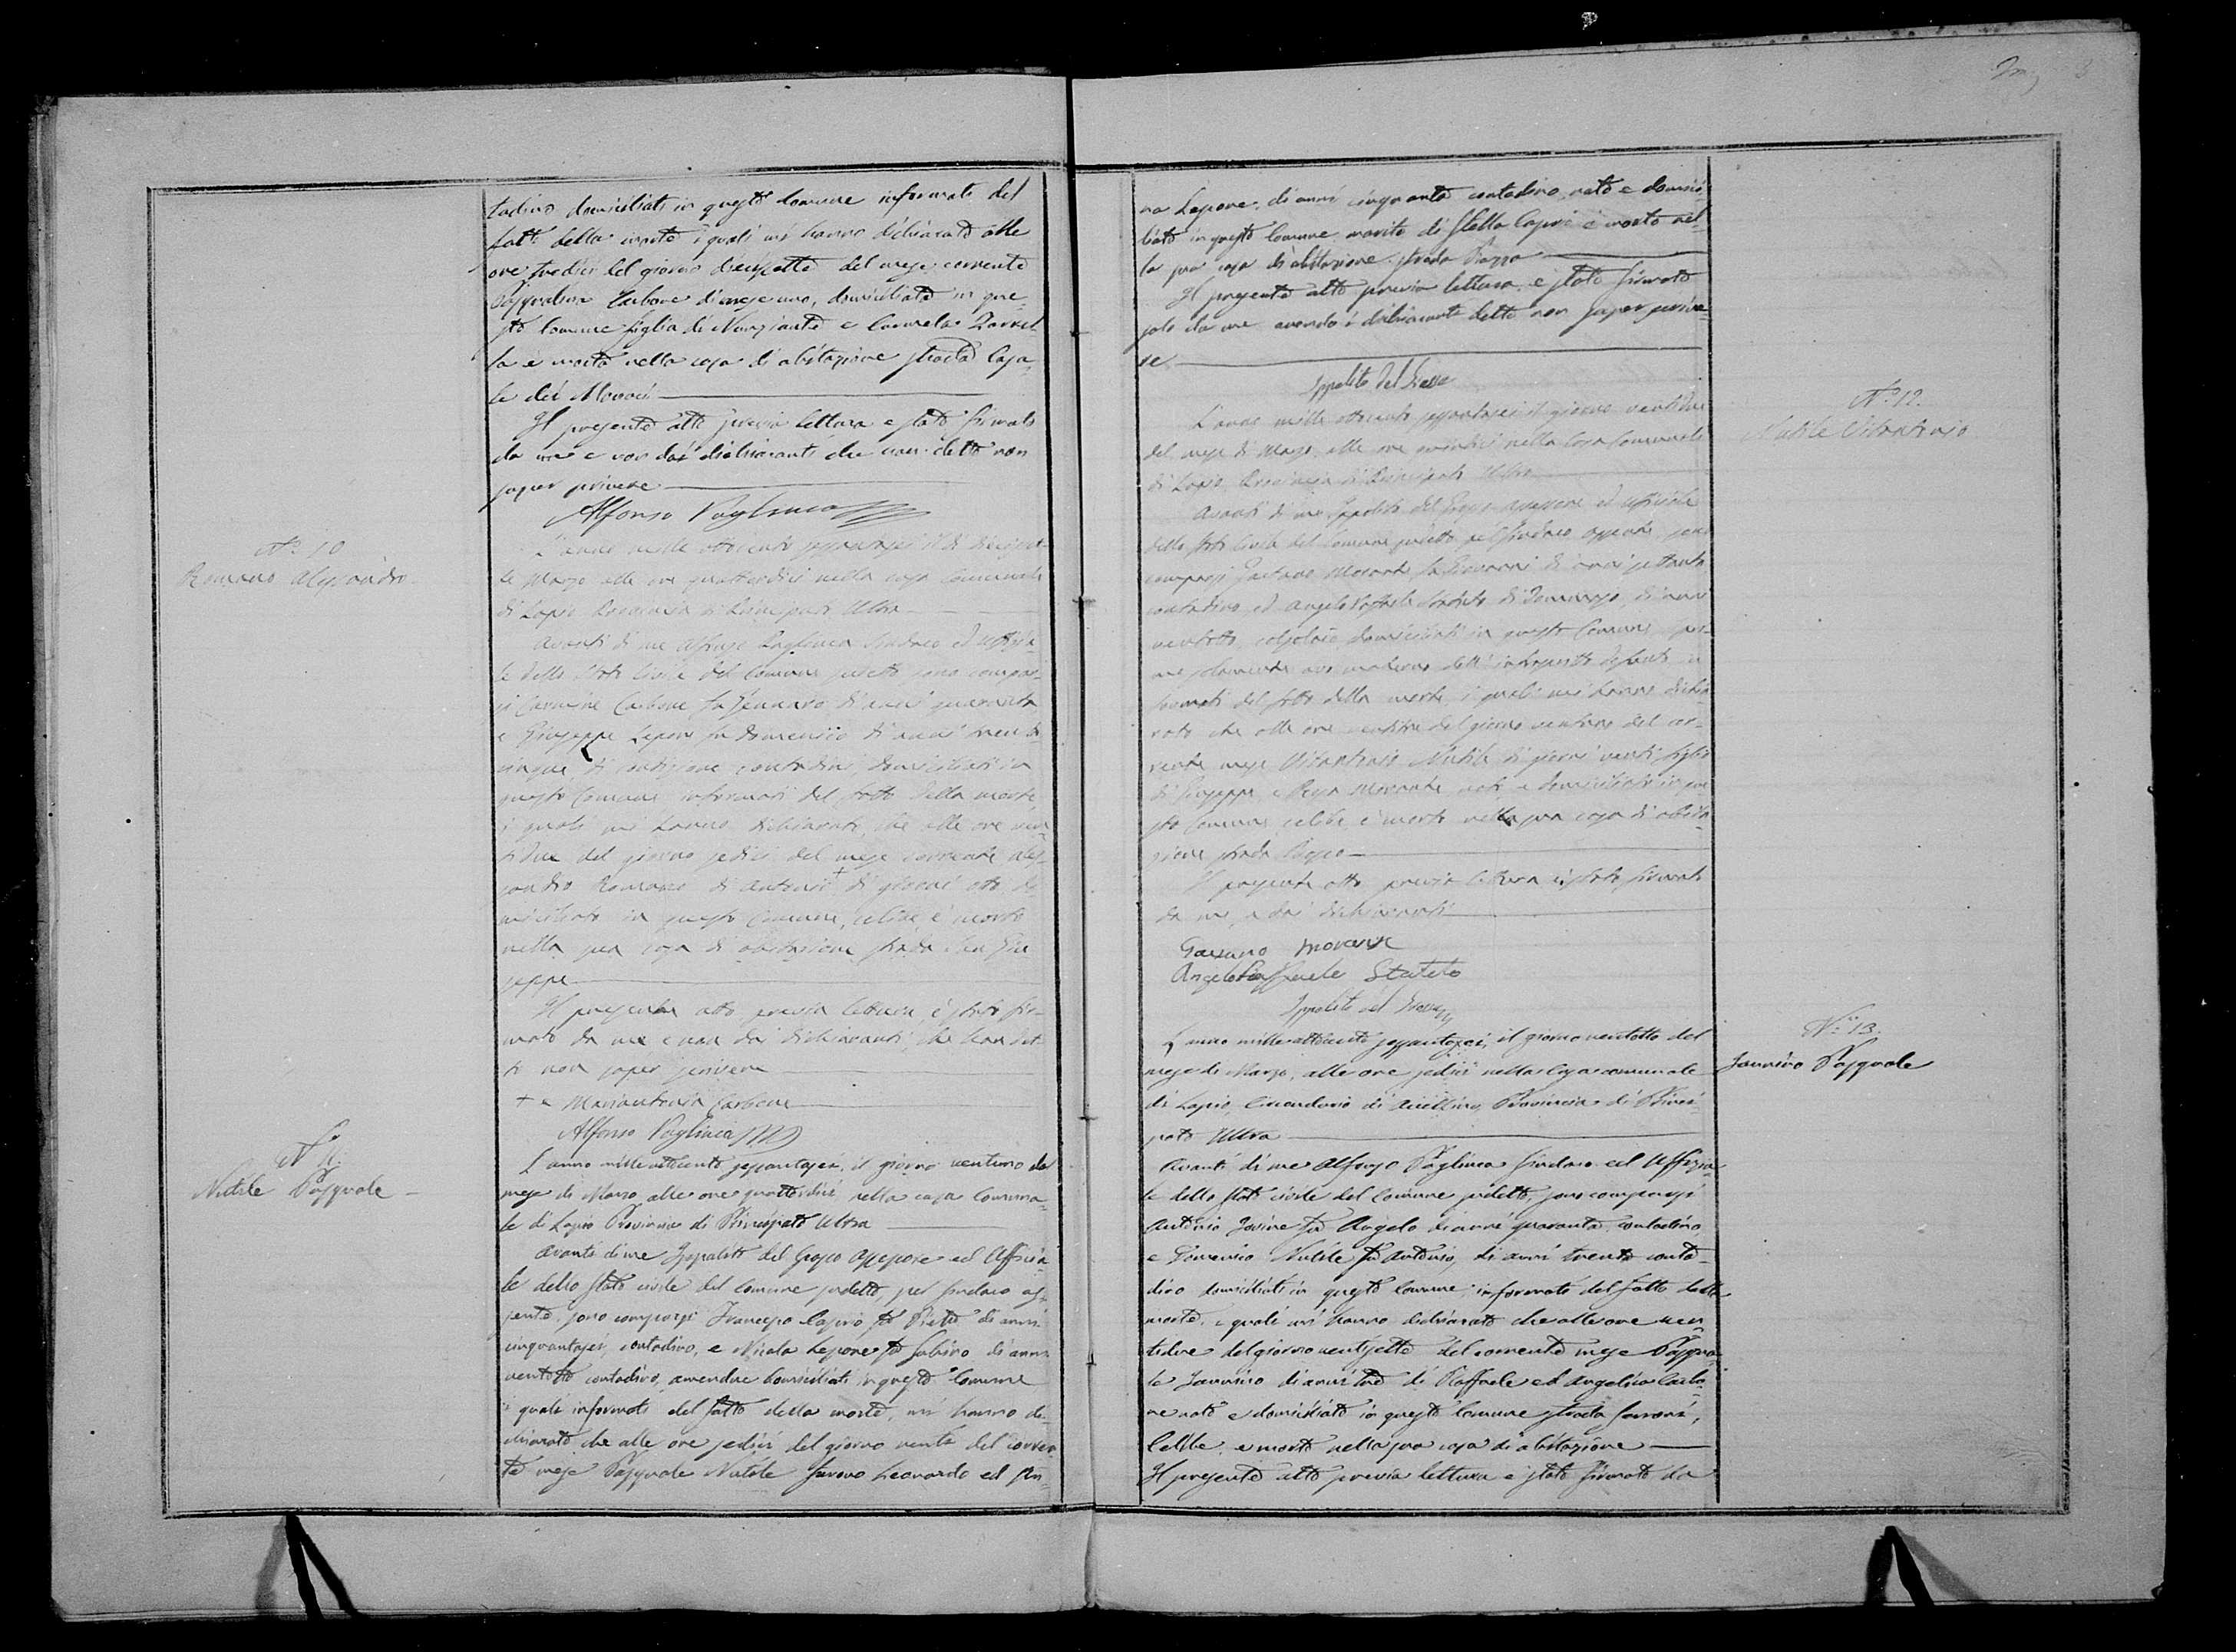 tadino domiciliati in questo Comune informati del
fatto della morte i quali mi hanno dichiarato alle
ore tredici del giorno diecisette del mese corrente
Carbone di mese uno, domiciliata in que¬
sto Comune figlia di Nunziante e Carmela Zarrel¬
la è morta nella casa di abitazione strada Casa¬
le dei
Il presente atto previa lettura è stato firmato
da me e non dai dichiaranti che han detto non
saper scrivere
Alfonso Pagliuca
N.º 10
Romano Alessandro
L'anno mille ottocento sessantasei il dì dicisset¬
te Marzo alle ore quattordici nella casa Comunale
di Lapio Provincia di Principato Ultra
Avanti di me Alfonso Pagliuca Sindaco ed Uffizia¬
le dello Stato Civile del Comune sudetto sono compar¬
si Carmine Carbone fu Gennaro di anni quaranta
e Giuseppe Lepore fu Domenico di anni trenta
cinque, di condizione contadini, domiciliati in
questo Comune informati del fatto della morte,
i quali mi hanno dichiarato, che alle ore ven¬
tidue del giorno sedici del mese corrente Ales¬
sandro Romano di Antonio + di giorni otto do
miciliato in questo Comune, celibe, è morto
nella sua casa di abitazione strada San Giu
seppe
Il presente atto, previa lettura, è stato fir¬
mato da me e non dai dichiaranti, che han det¬
to non saper scrivere
+ e Mariantonia Carbone
Alfonso Pagliuca
N. 11
Nutile Pasquale
L'anno mille ottocento sessantasei, il giorno ventuno del
mese di Marzo, alle ore quattordici nella casa Comuna¬
le di Lapio Provincia di Principato Ultra
Avanti di me Ippolito del Grosso Assessore ed Uffizia¬
le dello Stato civile del Comune sudetto, pel Sindaco as¬
sente, sono comparsi Francesco Caprio fu Pietro di anni
cinquantasei, contadino, e Nicola Lepore fu Sabino di anni
ventotto contadino, amendue domiciliati in questo Comune
i quali informati del fatto della morte, mi hanno di¬
chiarato che alle ore sedici del giorno venti del corren
te mese Pasquale Nutile furono Leonardo ed An¬
na Lepore, di anni cinquanta contadino, nato e domici¬
liato in questo Comune marito di Stella Caprio è morto nel¬
la sua casa di abitazione strada Piazza
Il presente atto previa lettura, è stato firmato
solo da me avendo i dichiaranti detto non saper scrive¬
re
Ippolito del Grosso
N.º 12.
Nutile Vitantonio
L'anno mille ottocento sessantasei il giorno ventidue
del mese di Marzo, alle ore quindici nella Casa Comunale
di Lapio, Provincia di Principato Ultra
Avanti di me Ippolito del Grosso Assessore ed Uffiziale
dello Stato Civile del Comune sudetto pel Sindaco assente, sono
comparsi Gaetano Morante fu Giovanni di anni settanta
contadino, ed Angelo Raffaele di Domenico, di anni
ventotto, calzolaio domiciliati in questo Comune,
avo materno dell'
formati del fatto della morte, i quali mi hanno dichia
rato che alle ore ventitre del giorno ventuno del cor¬
rente mese Vitantonio Nutile di giorni venti figlio
di Giuseppe e Rosa Morante nato e domiciliato in que
sto Comune, celibe, è morto nella sua casa di abita¬
zione strada
Il presente atto previa lettura è stato firmato
da me, e dai dichiaranti
Gaetano Morante
Angelo Raffaele
Ippolito del Grosso
N.º 13.
Iannino Pasquale
L'anno mille ottocento sessantasei, il giorno ventotto del
mese di Marzo, alle ore sedici nella Casa comunale
di Lapio, Circondario di Avellino, Provincia di Princi¬
pato Ultra
Avanti di me Alfonso Pagliuca Sindaco ed Uffizia¬
le dello Stato civile del Comune sudetto, sono comparsi
Antonio Iovine fu Angelo di anni quaranta contadino,
e Nutile fu Antonio, di anni trenta conta¬
dino domiciliati in questo Comune, informati del fatto della
morte, i quali mi hanno dichiarato che alle ore ven
tidue del giorno ventisette del corrente mese Pasqua¬
le Iannino di anni tre di Raffaele ed Angelica Carbo¬
ne nato e domiciliato in questo Comune strada
Celibe, è morto nella sua casa di abitazione
Il presente atto previa lettura è stato firmato da